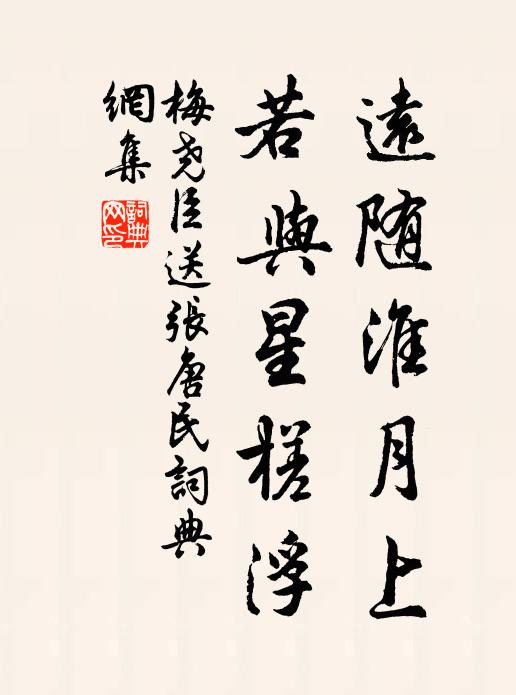 遠随淮月上
若與星槎浮
梅尧臣送張唐民詞典
網集
詞典網印